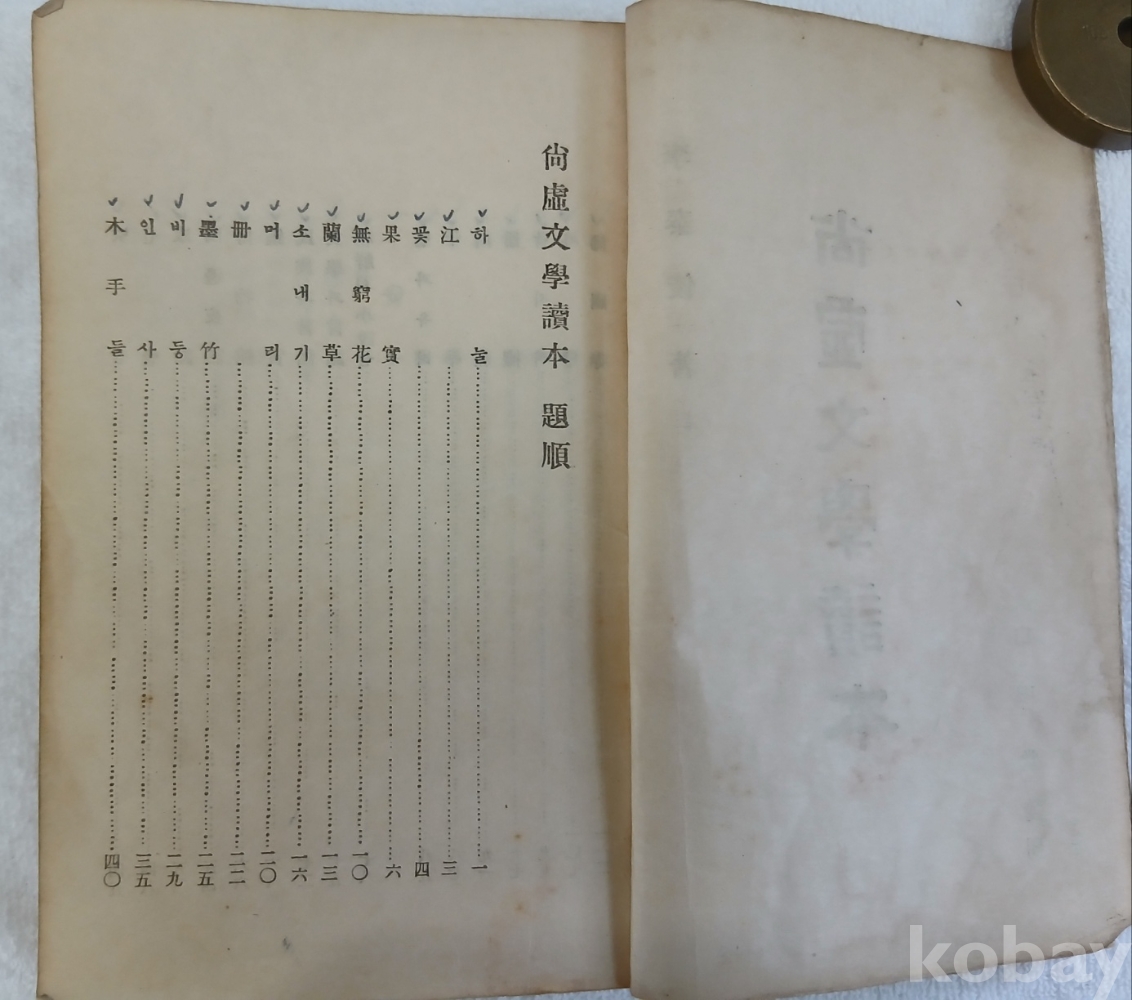 尙虛文學讀本 題順
하늘 一
江 三
꽃 四
果實 六
無窮花 一〇
蘭草 一三
소내기 一六
머리 二〇
冊 二二
墨竹 二五
비둥 二九
인사 三五
木手들 四〇
尙虛文學讀本
kobay